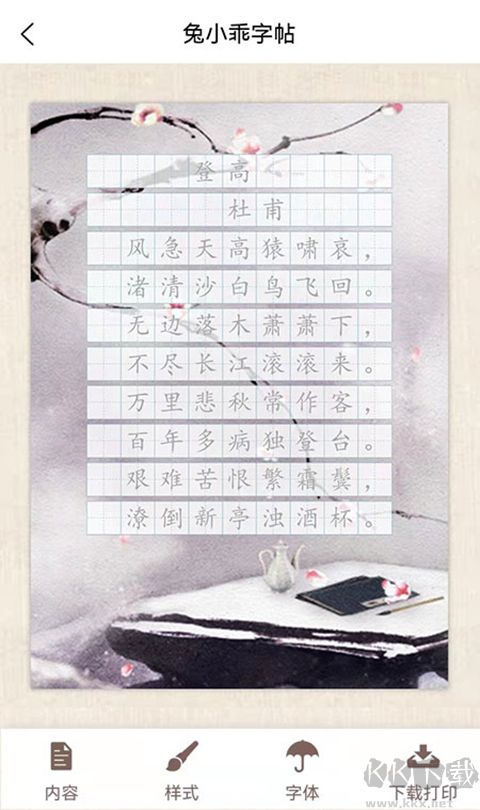 兔小乖字帖
登高
杜甫
风急天高猿啸哀，
渚清沙白鸟飞回。
无边落木萧萧下，
不尽长江滚滚来。
万里悲秋常作客，
百年多病独登台。
艰难苦恨繁霜鬓，
潦倒新亭浊酒杯。
内容
样式
字体
下载打印
KK下载
www.kkx.net